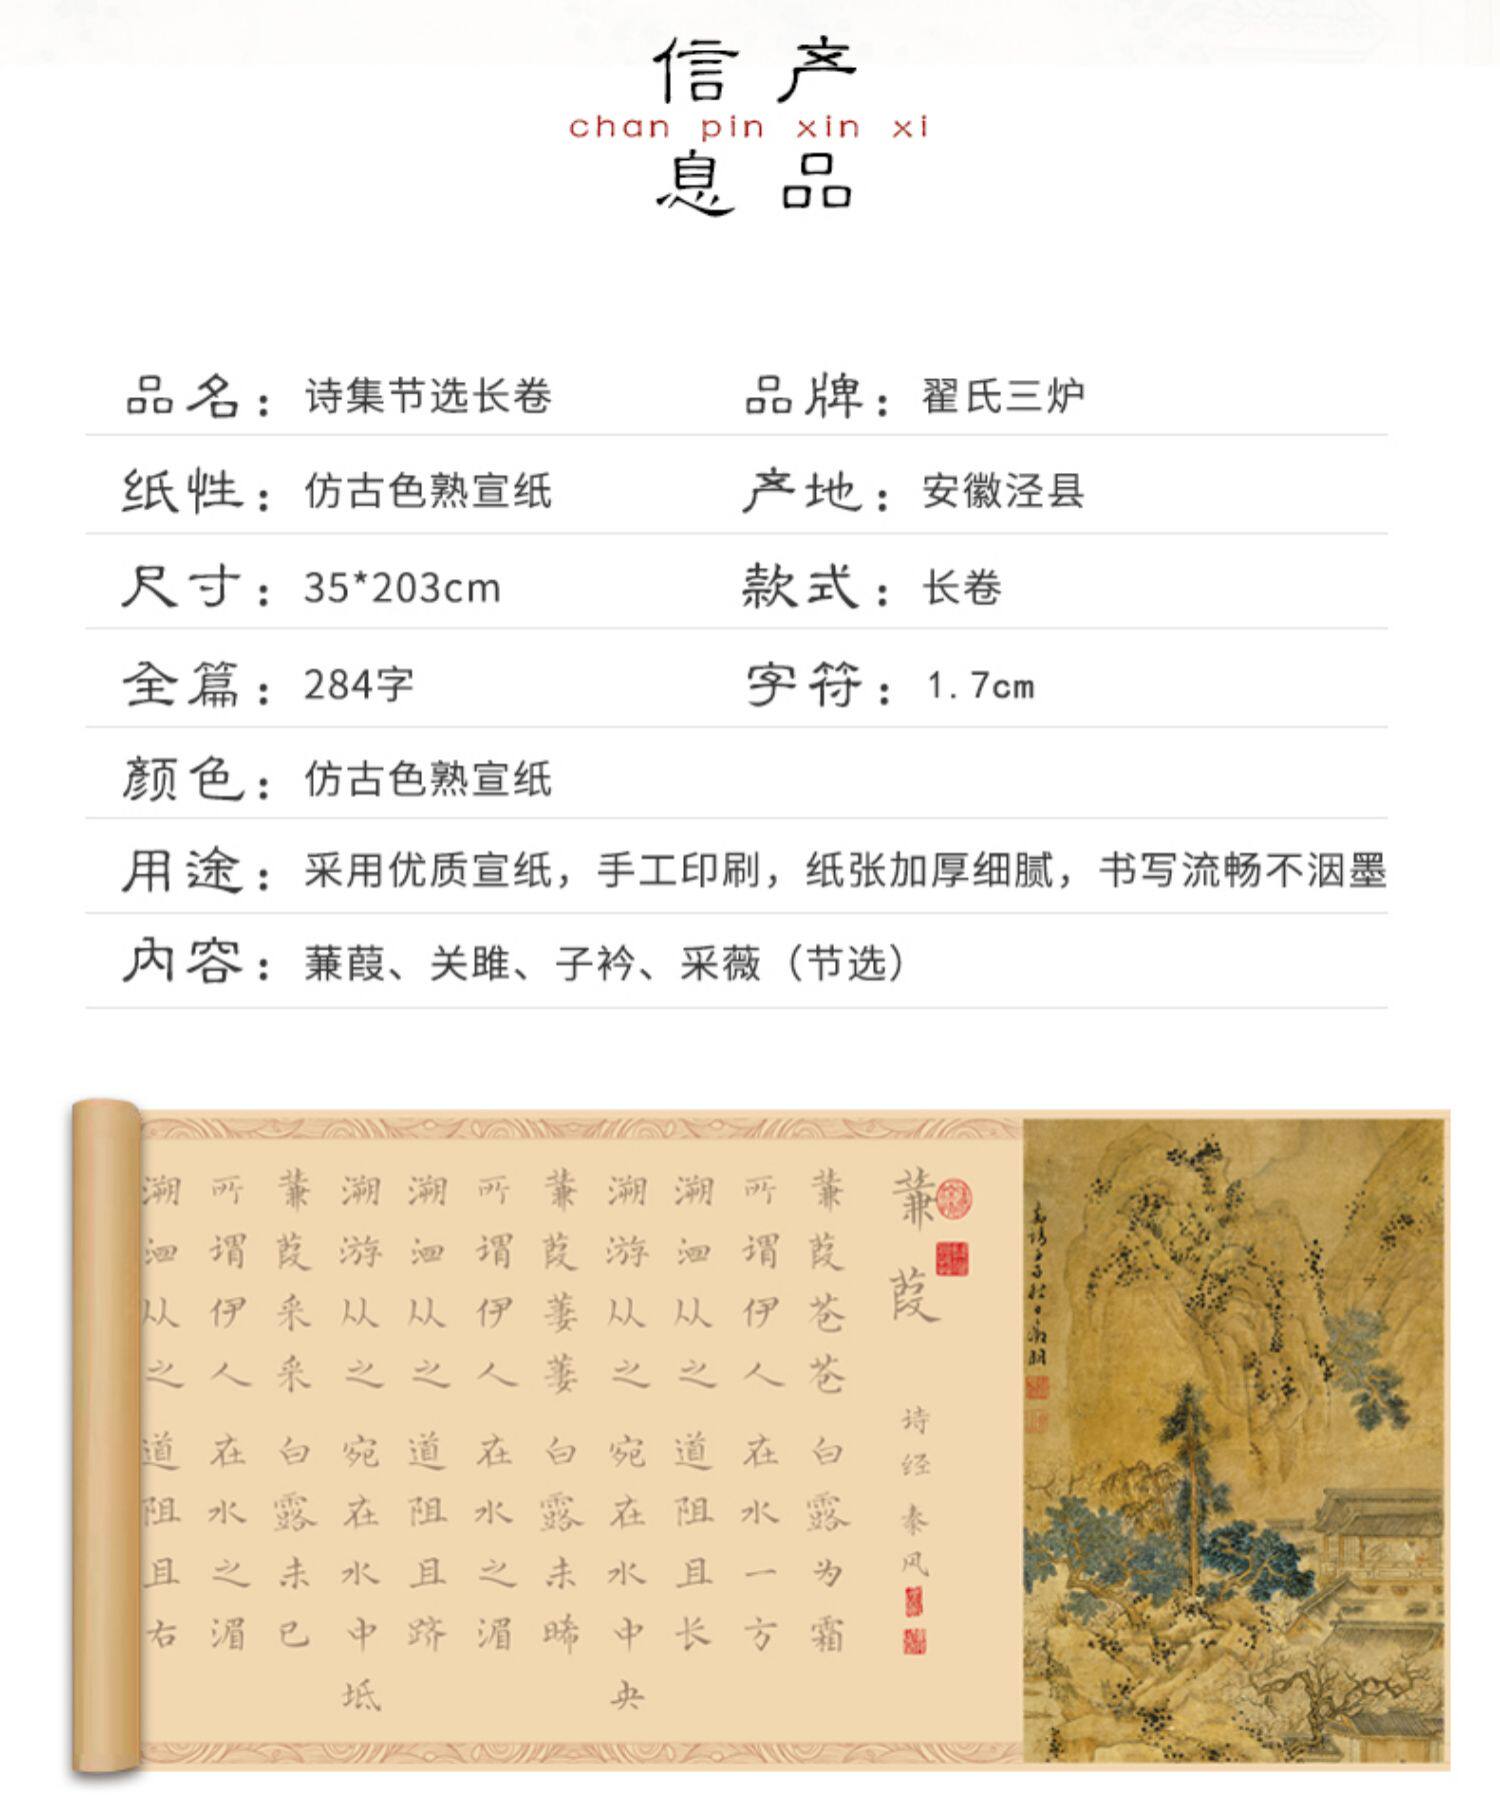 产品
信息
chan pin xin xi
品名：诗集节选长卷
品牌：翟氏三炉
纸性：仿古色熟宣纸
产地：安徽泾县
尺寸：35*203cm
款式：长卷
全篇：284字
字符：1.7cm
颜色：仿古色熟宣纸
用途：采用优质宣纸，手工印刷，纸张加厚细腻，书写流畅不洇墨
内容：蒹葭、关雎、子衿、采薇（节选）
蒹葭
诗经 秦风
蒹葭苍苍 白露为霜
所谓伊人 在水一方
溯洄从之 道阻且长
溯游从之 宛在水中央
蒹葭萋萋 白露未晞
所谓伊人 在水之湄
溯洄从之 道阻且跻
溯游从之 宛在水中坻
蒹葭采采 白露未已
所谓伊人 在水之湄
溯洄从之 道阻且右